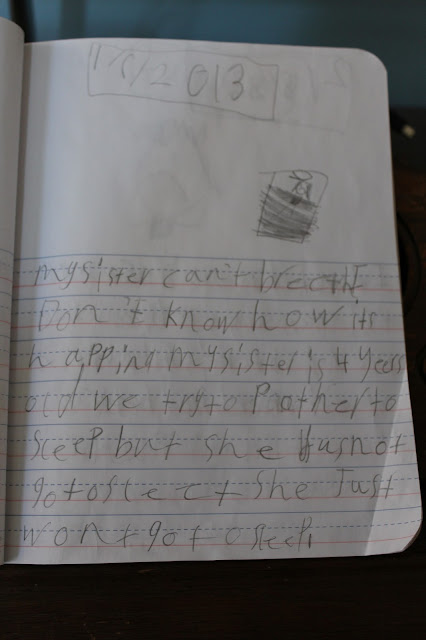 1/5/2013
my sister can't breathe
Don't know how its
happind my sister is 4 years
old we try to Poot her to
Sleep but she has not
go to sleet she Just
wont go to sleep.